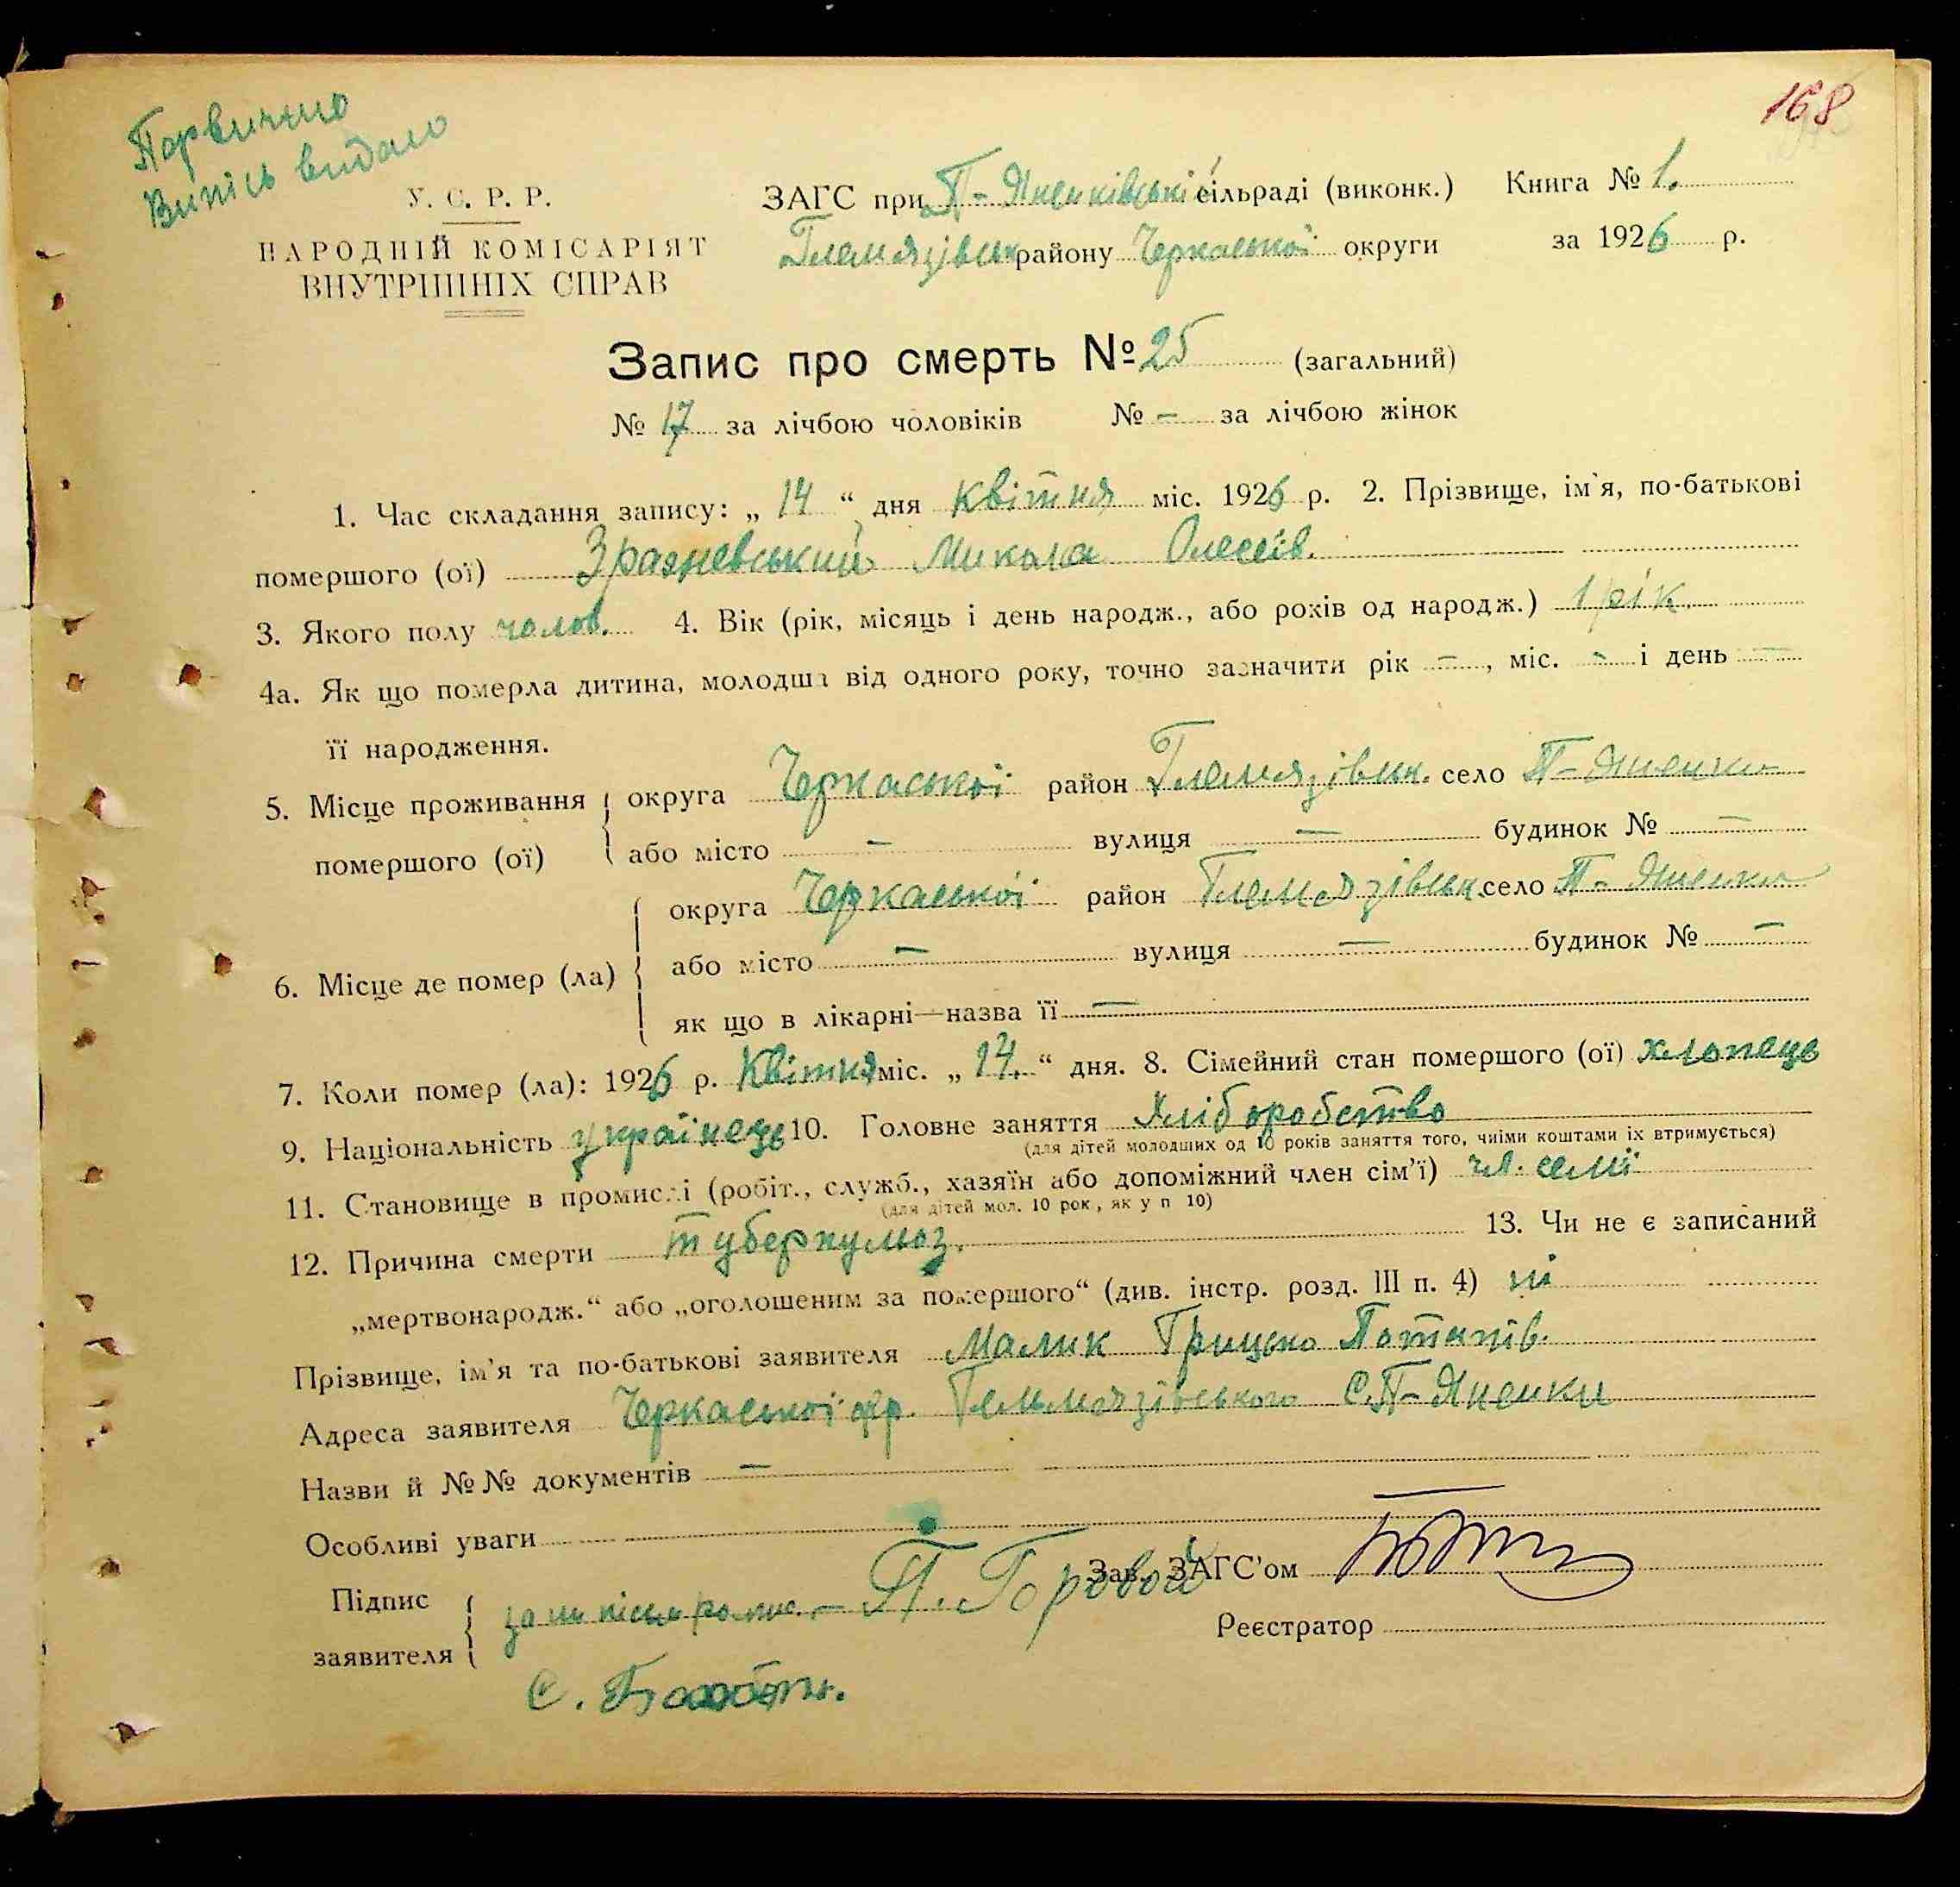 168
Первично
Випісь видано
У. С. Р. Р.
НАРОДНІЙ КОМІСАРІЯТ
ВНУТРІШНІХ СПРАВ
ЗАГС при П-Яненківські сільраді (виконк.) Книга № 1.
Гельмязівськ району Черкаської округи за 1926 р.
Запис про смерть № 25 (загальний)
№ 17 за лічбою чоловіків № – за лічбою жінок
1. Час складання запису: „ 14 “ дня Квітня міс. 1926 р. 2. Прізвище, ім'я, по-батькові
помершого (ої) Зражевський Микола Олексів.
3. Якого полу чолов. 4. Вік (рік, місяць і день народж., або років од народж.) 1 рік.
4а. Як що померла дитина, молодша від одного року, точно зазначити рік –, міс. – і день –
її народження.
5. Місце проживання помершого (ої) округа Черкаської район Гелмязівськ. село П-Яненки
або місто – вулиця – будинок № –
6. Місце де помер (ла) округа Черкаської район Гелмязівськ. село П-Яненки
або місто – вулиця – будинок № –
як що в лікарні—назва її –
7. Коли помер (ла): 1926 р. Квітня міс. „ 14. “ дня. 8. Сімейний стан помершого (ої) хлопець
9. Національність українець 10. Головне заняття Хліборобство
(для дітей молодших од 10 років заняття того, чиїми коштами їх втримується)
11. Становище в промислі (робіт., служб., хазяїн або допоміжний член сім'ї) чл. семї
(для дітей мол. 10 рок., як у п 10)
12. Причина смерти туберкульоз. 13. Чи не є записаний
„мертвонародж.“ або „оголошеним за помершого“ (див. інстр. розд. III п. 4) ні
Прізвище, ім'я та по-батькові заявителя Малик Грицько Потапів.
Адреса заявителя Черкаської окр. Гельмязівського С. П-Яненки
Назви й №№ документів –
Особливі уваги
Підпис заявителя П. Горовой Зав. ЗАГС'ом
Реєстратор